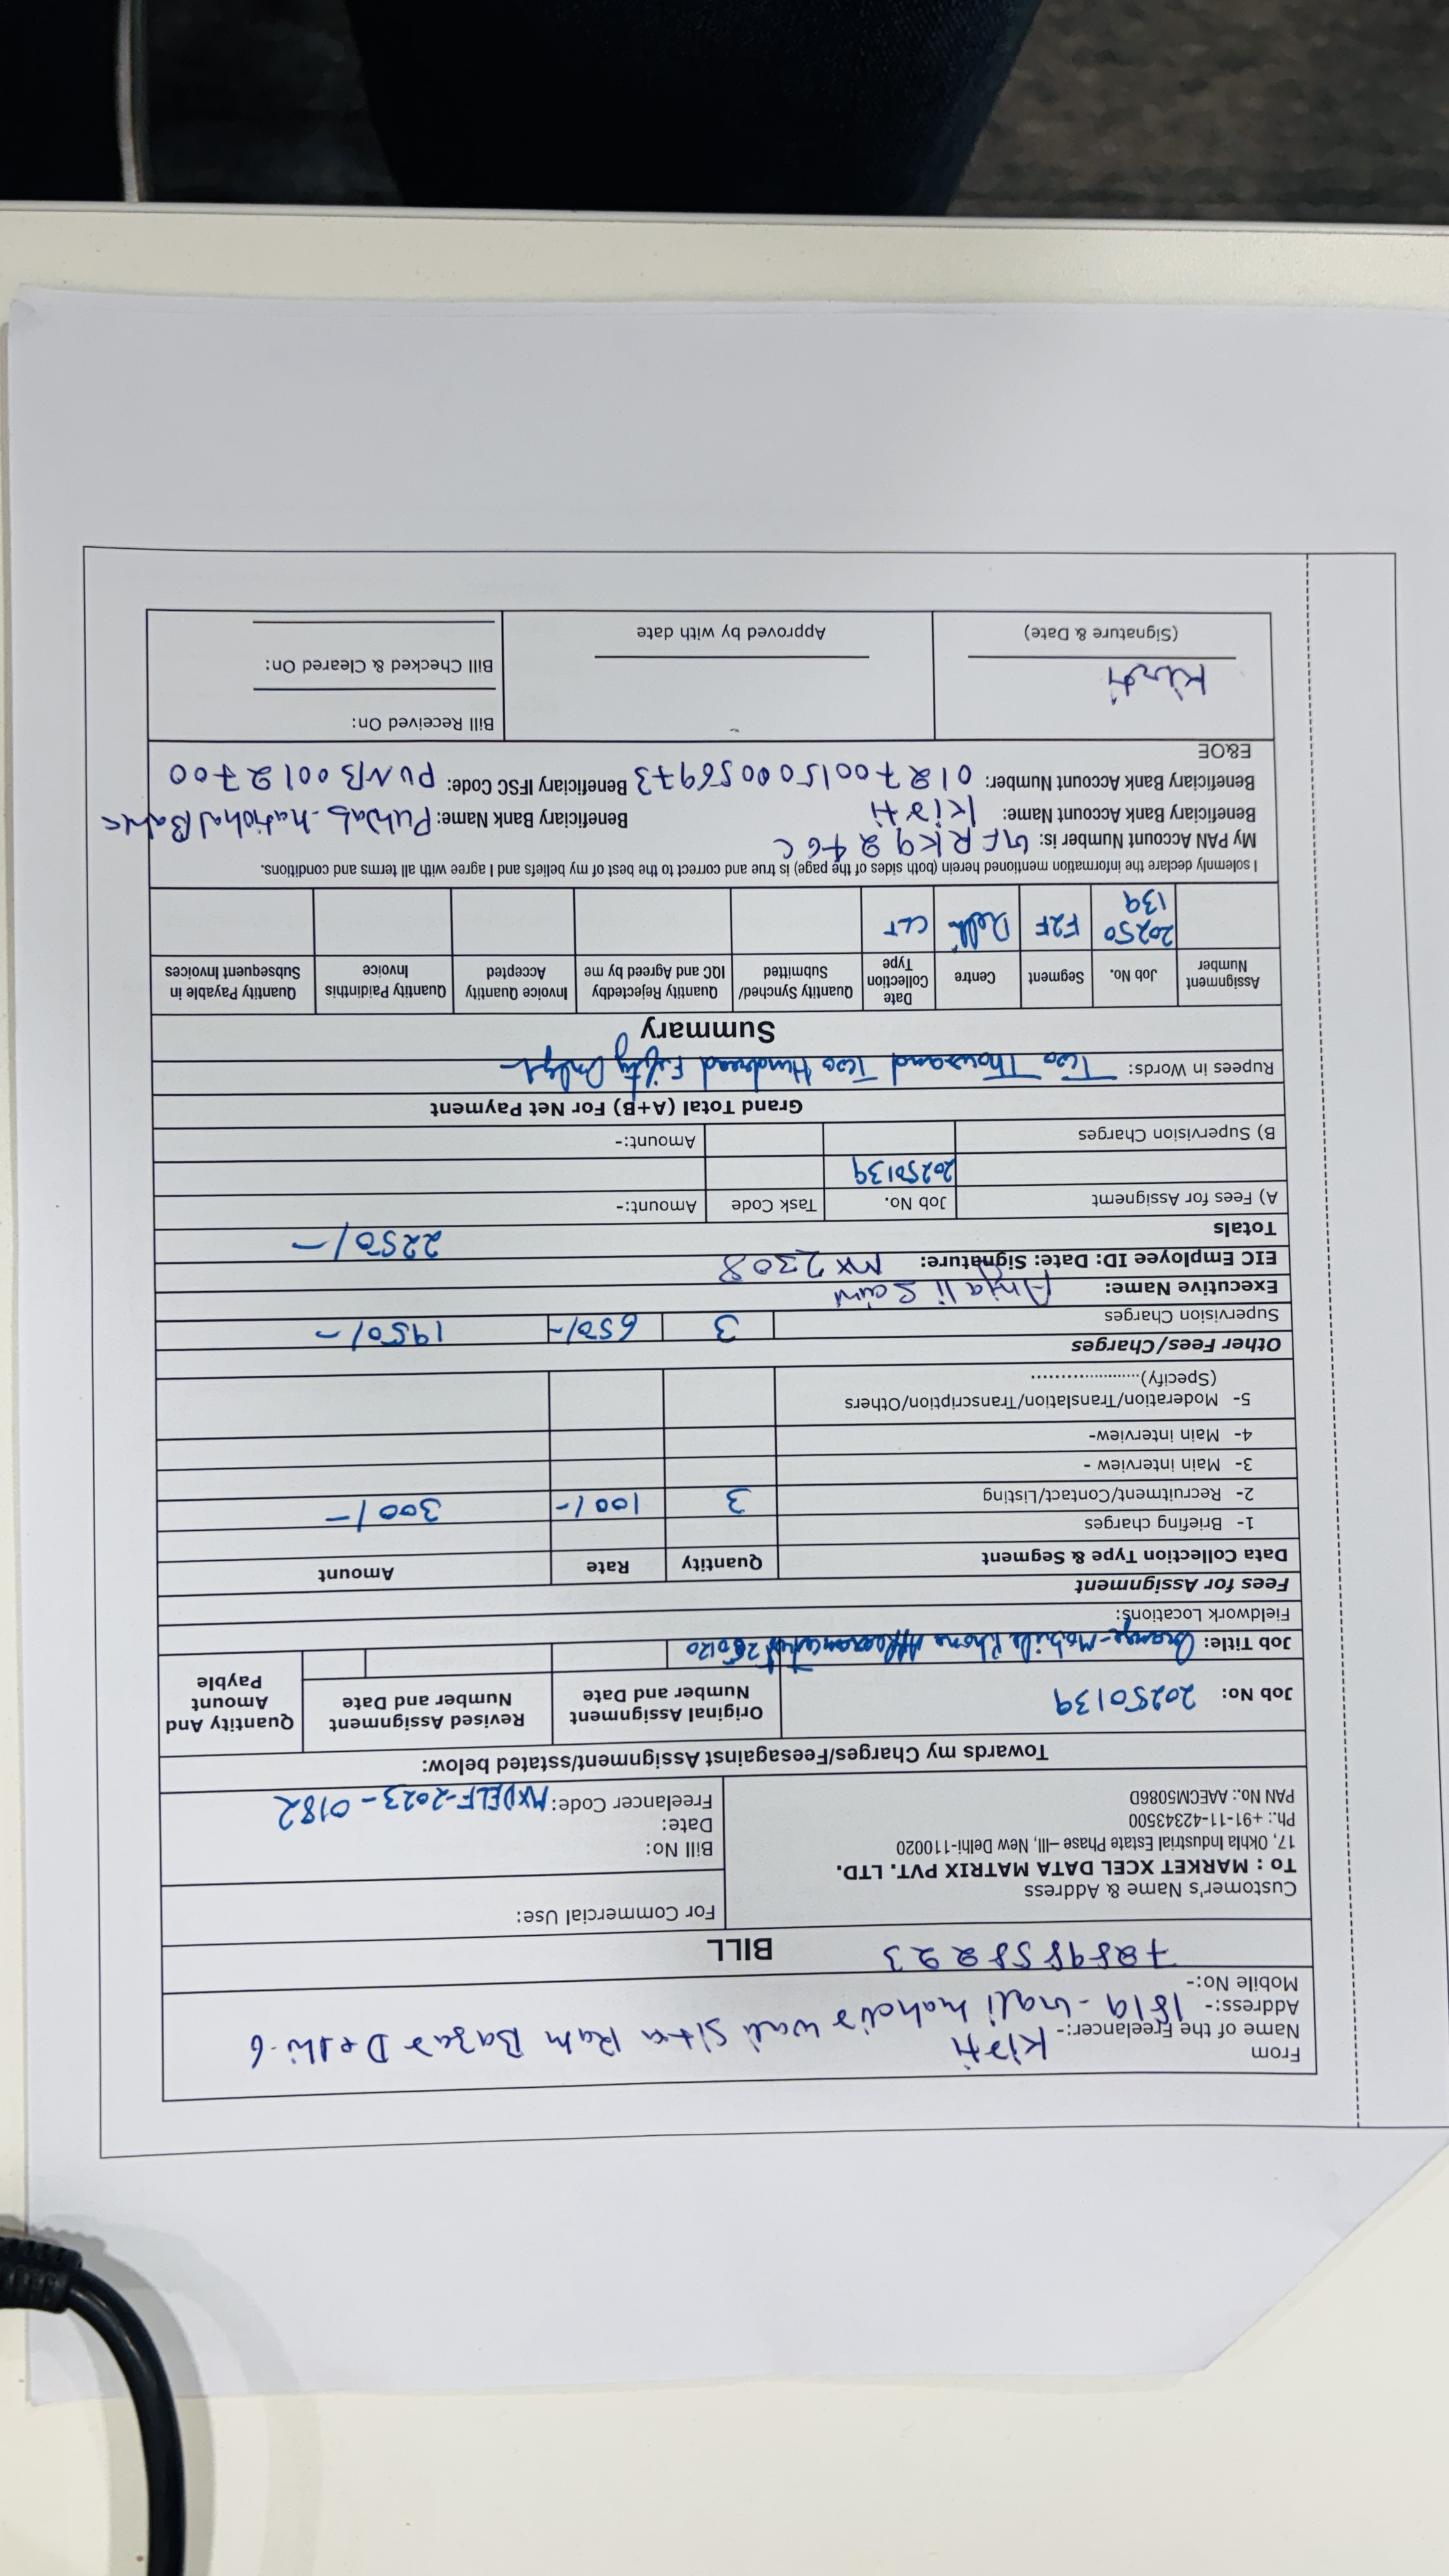 From
Name of the Freelancer:- Kirti
Address:- 1819- Gali mandir wali Sita Ram Bazar Delhi-6
Mobile No:-
7289858223
BILL
Customer's Name & Address
To : MARKET XCEL DATA MATRIX PVT. LTD.
17, Okhla Industrial Estate Phase –III, New Delhi-110020
Ph.: +91-11-42343500
PAN No.: AAECM5086D
For Commercial Use:
Bill No:
Date:
Freelancer Code: MXDELF-2023-0182
Towards my Charges/Feesagainst Assignment/sstated below:
Job No: 20250139
Original Assignment Number and Date
Revised Assignment Number and Date
Quantity And Amount Payble
Job Title: Orange-Mobile Phone
Fieldwork Locations:
Fees for Assignment
Data Collection Type & Segment Quantity Rate Amount
1- Briefing charges
2- Recruitment/Contact/Listing 3 100/- 300/-
3- Main interview -
4- Main interview-
5- Moderation/Translation/Transcription/Others
(Specify).....................
Other Fees/Charges
Supervision Charges 3 650/- 1950/-
Executive Name: Anjali Saini
EIC Employee ID: Date: Signature: MX2308
Totals 2250/-
A) Fees for Assignemt Job No. Task Code Amount:-
20250139
B) Supervision Charges Amount:-
Grand Total (A+B) For Net Payment
Rupees in Words: Two Thousand Two Hundred Fifty Only/-
Summary
Assignment Number Job No. Segment Centre Date Collection Type Quantity Synched/ Submitted Quantity Rejectedby IQC and Agreed by me Invoice Quantity Accepted Quantity Paidinthis Invoice Quantity Payable in Subsequent Invoices
20250139 F2F Delhi CLT
I solemnly declare the information mentioned herein (both sides of the page) is true and correct to the best of my beliefs and I agree with all terms and conditions.
My PAN Account Number is: GFRK9246C
Beneficiary Bank Account Name: Kirti Beneficiary Bank Name: Punjab-national Bank
Beneficiary Bank Account Number: 0127001500056973 Beneficiary IFSC Code: PUNB0012700
E&OE
Kirti
(Signature & Date)
Approved by with date
Bill Received On:
Bill Checked & Cleared On: